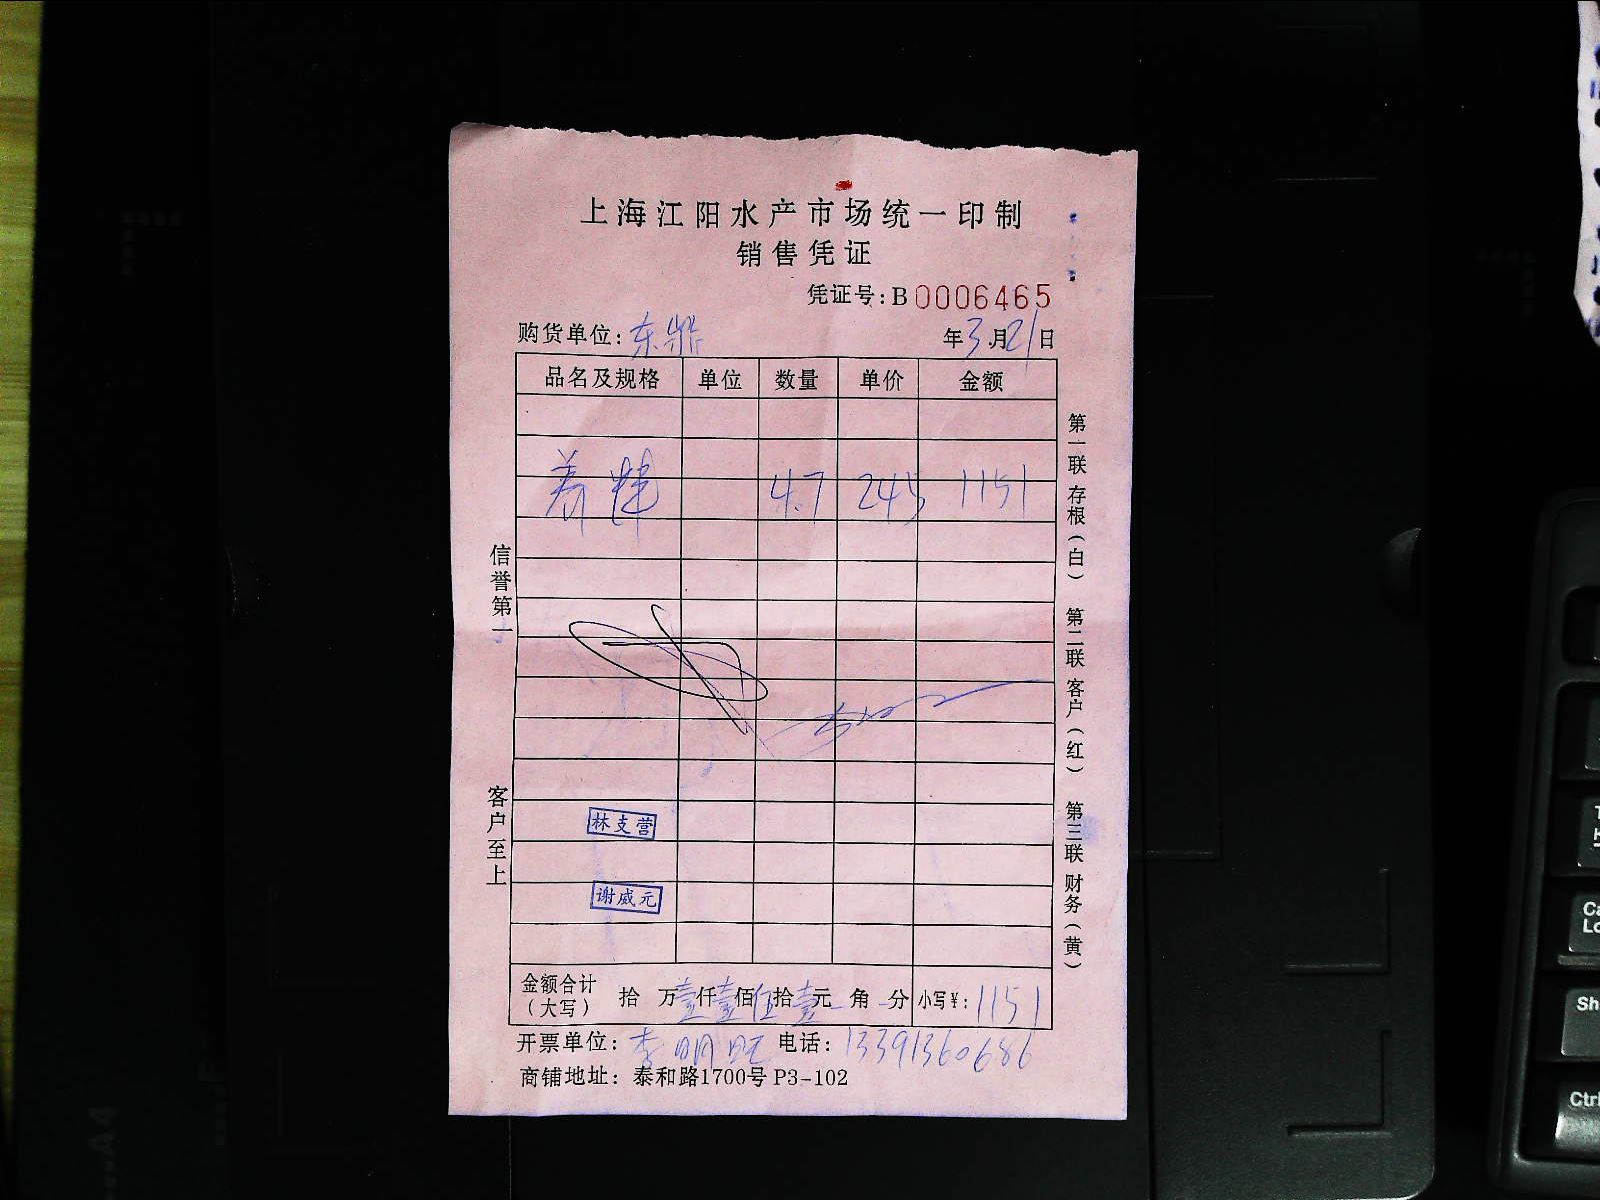 上海江阳水产市场统一印制
销售凭证
凭证号：B 0006465
购货单位：东鼎 年3月21日
品名及规格 单位 数量 单价 金额
4.7 245 1151
林支营
谢威元
金额合计（大写） 拾 万壹仟壹佰伍拾壹元 角 分 小写￥：1151
开票单位：李明旺 电话：13391360686
商铺地址：泰和路1700号 P3-102
信誉第一
客户至上
第一联 存根（白） 第二联 客户（红） 第三联 财务（黄）
Sh
Ctrl
A4